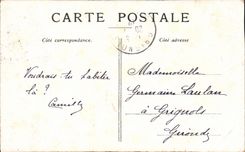 CARTE POSTALE
Côté correspondance.
Côté adresse.
Voudrais tu habiter
là ?
Camille
Mademoiselle
Germaine Laulan
à Grignols
Gironde